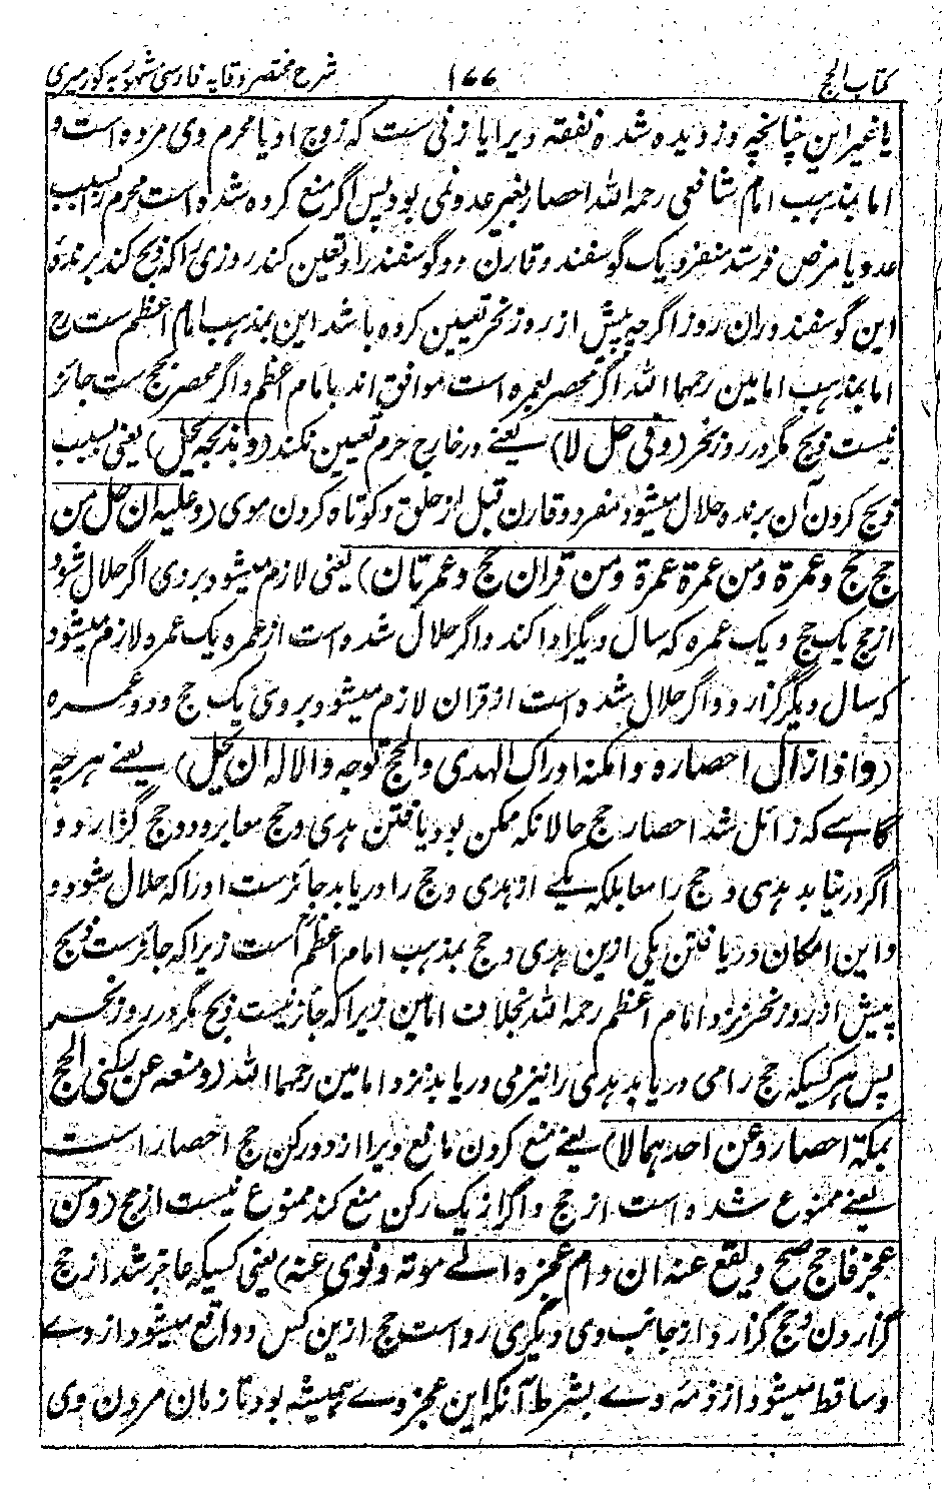 کتاب الحج ۱۶۶ شرح مختصر وقایہ فارسی مشہور بہ کورمیری
یا غیر این چنانچه دزدیده شده نفقه ویرا یا زنی ست که زوج او یا محرم وی مرده است و
اما بمذہب امام شافعی رحمہ اللہ احصار بغیر عدو نمی بود پس اگر منع کرده شده است محرم را بسبب
عدو یا مرض فرستد منفرد یک گوسفند و قارن دو گوسفند را و تعین کند روزی را که ذبح کند برنده
این گوسفند دران روز اگرچه پیش از روز نحر تعیین کرده باشد این بمذہب امام اعظم ست رح
اما بمذہب امامین رحمہما اللہ اگر محصر بعمره است موافق اند بامام اعظم و اگر محصر بحج ست جائز
نیست ذبح مگر در روز نحر (و فی حل لا) یعنے در خارج حرم تعیین نکند (و بذبحه یحل) یعنی بسبب
ذبح کردن آن برنده حلال میشود منفرد و قارن قبل از حلق و کوتاه کردن موی (و علیه ان حل من
حج حج و عمرة و من عمرة عمرة و من قران حج و عمرتان) یعنی لازم میشود بروی اگر حلال شود
از حج یک حج و یک عمره که سال دیگر ادا کند و اگر حلال شده است از عمره یک عمره لازم میشود
که سال دیگر گزارد و اگر حلال شده است از قران لازم میشود بروی یک حج و دو عمره
(و اذا زال احصاره و امکنه ادراک الهدی و الحج توجه و الا له ان یحل) یعنے ہر چہ
گاہے که زائل شد احصار حج حالانکه ممکن بود یافتن ہدی و حج معا برود و حج گزارد و
اگر درنیابد ہدی و حج را معا بلکه یکے از ہدی و حج را دریابد جائز ست او را که حلال شود و
و این امکان دریافتن یکی ازین ہدی و حج بمذہب امام اعظم است زیرا که جائز ست ذبح
پیش از روز نحر نزد امام اعظم رحمہ اللہ بخلاف امامین زیرا که جائز نیست ذبح مگر در روز نحر
پس ہر کسیکه حج را می دریابد ہدی را نیز می دریابد نزد امامین رحمہما اللہ (و منعه عن رکنی الحج
بمکة احصار و عن احدہما لا) یعنے منع کردن مانع ویرا از دو رکن حج احصار است
یعنے ممنوع شده است از حج و اگر از یک رکن منع کند ممنوع نیست از حج (و من
عجز فاحج صح و یقع عنه ان دام عجزه الے موته و نوی عنه) یعنی کسیکه عاجز شد از حج
گزاردن و حج گزارد از جانب وی دیگری رواست حج ازین کس و واقع میشود از وے
و ساقط میشود از ذمہ وے بشرط آنکه این عجز وے ہمیشه بود تا زمان مردن وی